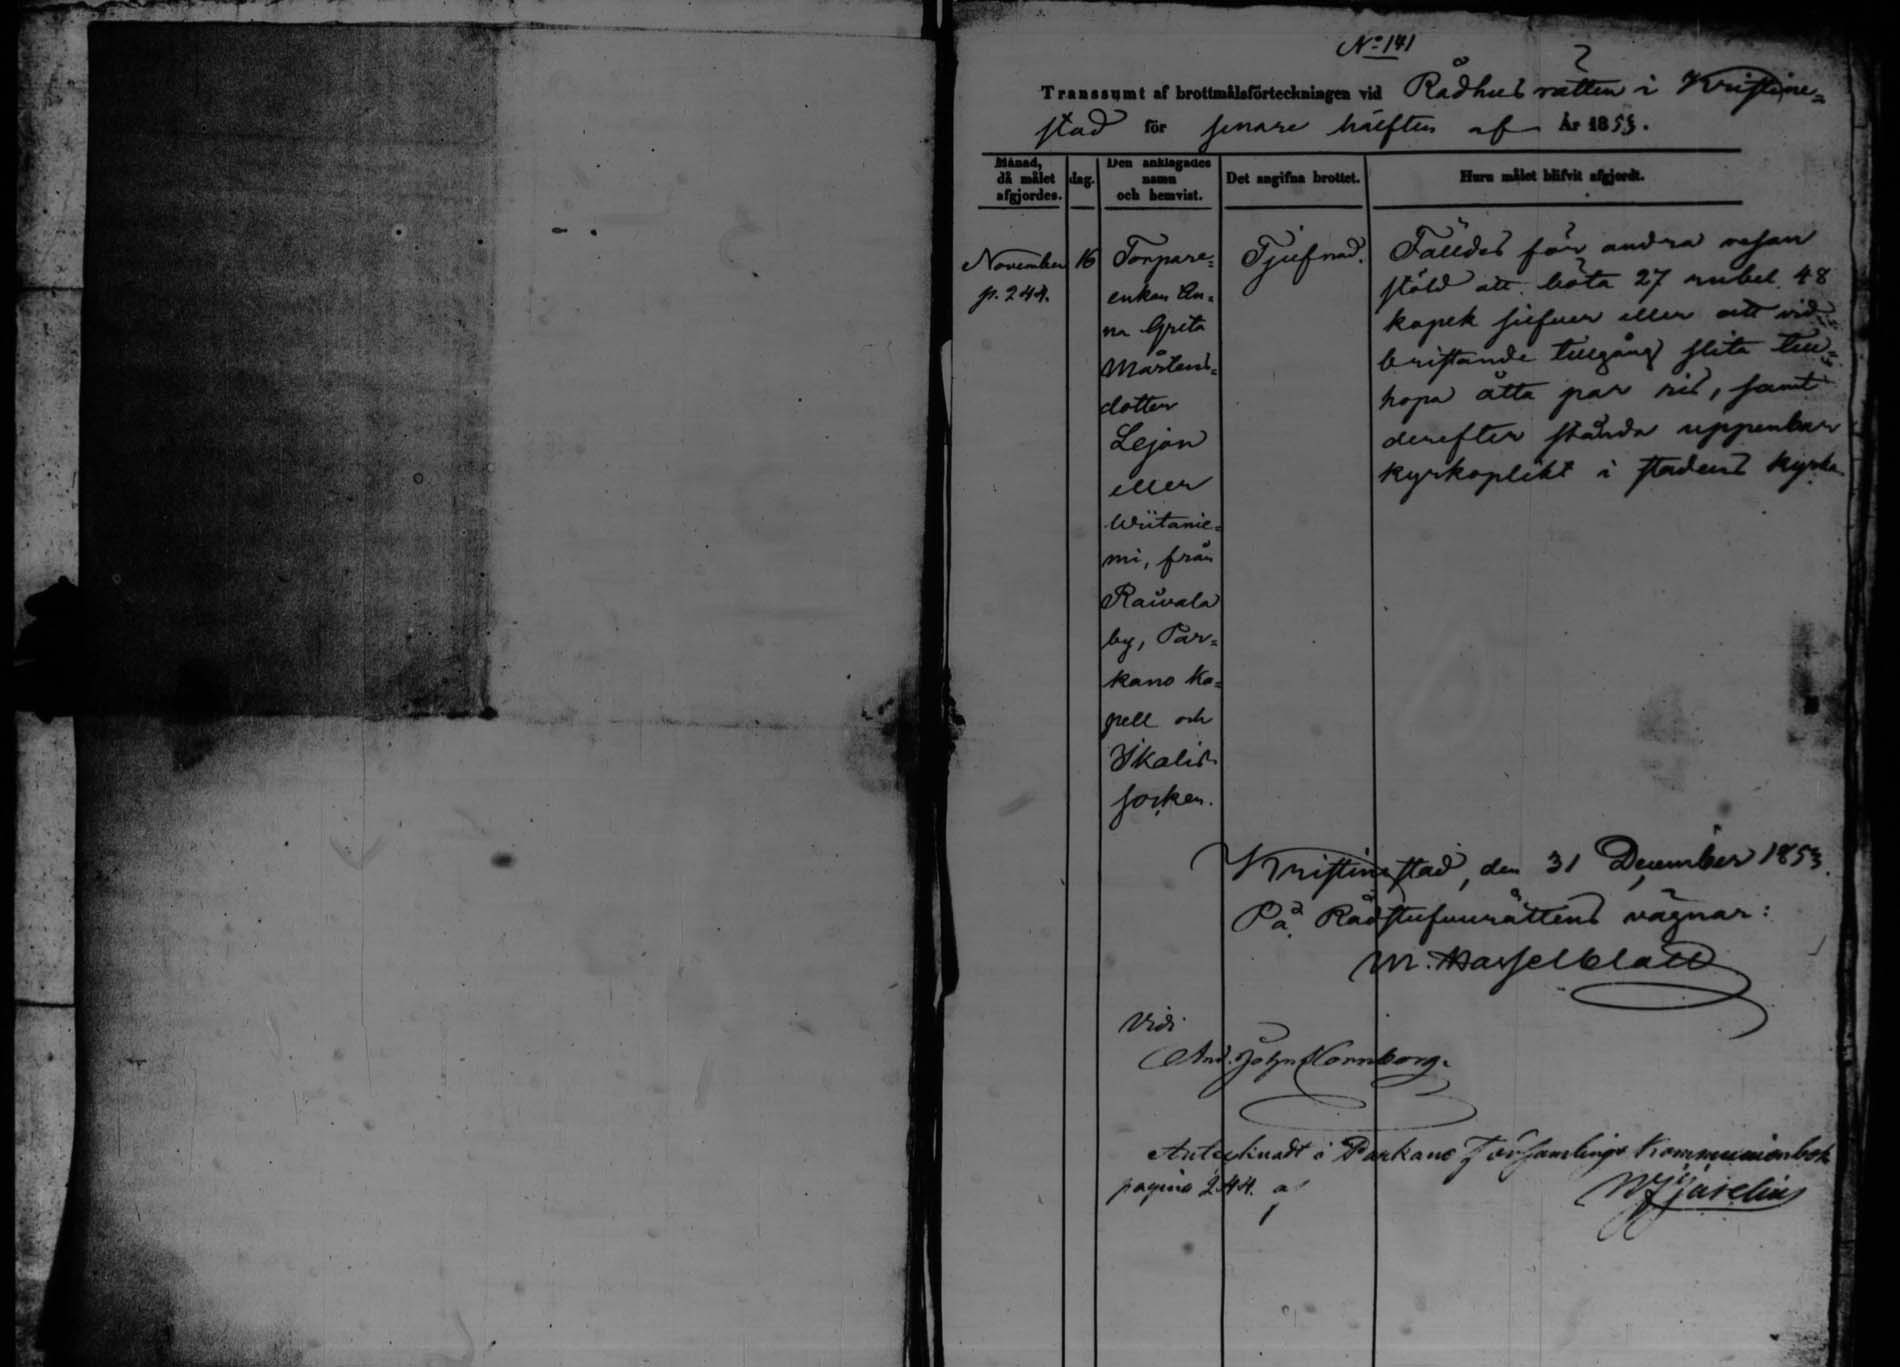 No 141
Transsumt af brottmålsförteckningen vid Rådhusrätten i Kristine=
stad för senare hälften af År 1853.
Månad, då målet afgjordes.
dag.
Den anklagades namn och hemvist.
Det angifna brottet.
Huru målet blifvit afgjordt.
November
p. 244.
16
Torpare=
enkan An=
na Greta
Mårtens=
dotter
Lejon
eller
Wiitanie=
mi, från
Raivala
by, Par=
kano Ka=
pell och
Ikalis
socken.
Tjufnad.
Fälldes för andra resan
stöld att böta 27 rubel 48
kopek silfver eller att vid
bristande tillgång slita till=
hopa åtta par ris, samt
derefter stånda uppenbar
kyrkoplikt i stadens kyrka.
Kristinestad, den 31 December 1853.
På Rådstufvurättens vägnar:
M. Hasselblatt
Vidi
And. John
Antecknadt i Parkano Församlings Kommunionbok
pagina 244.